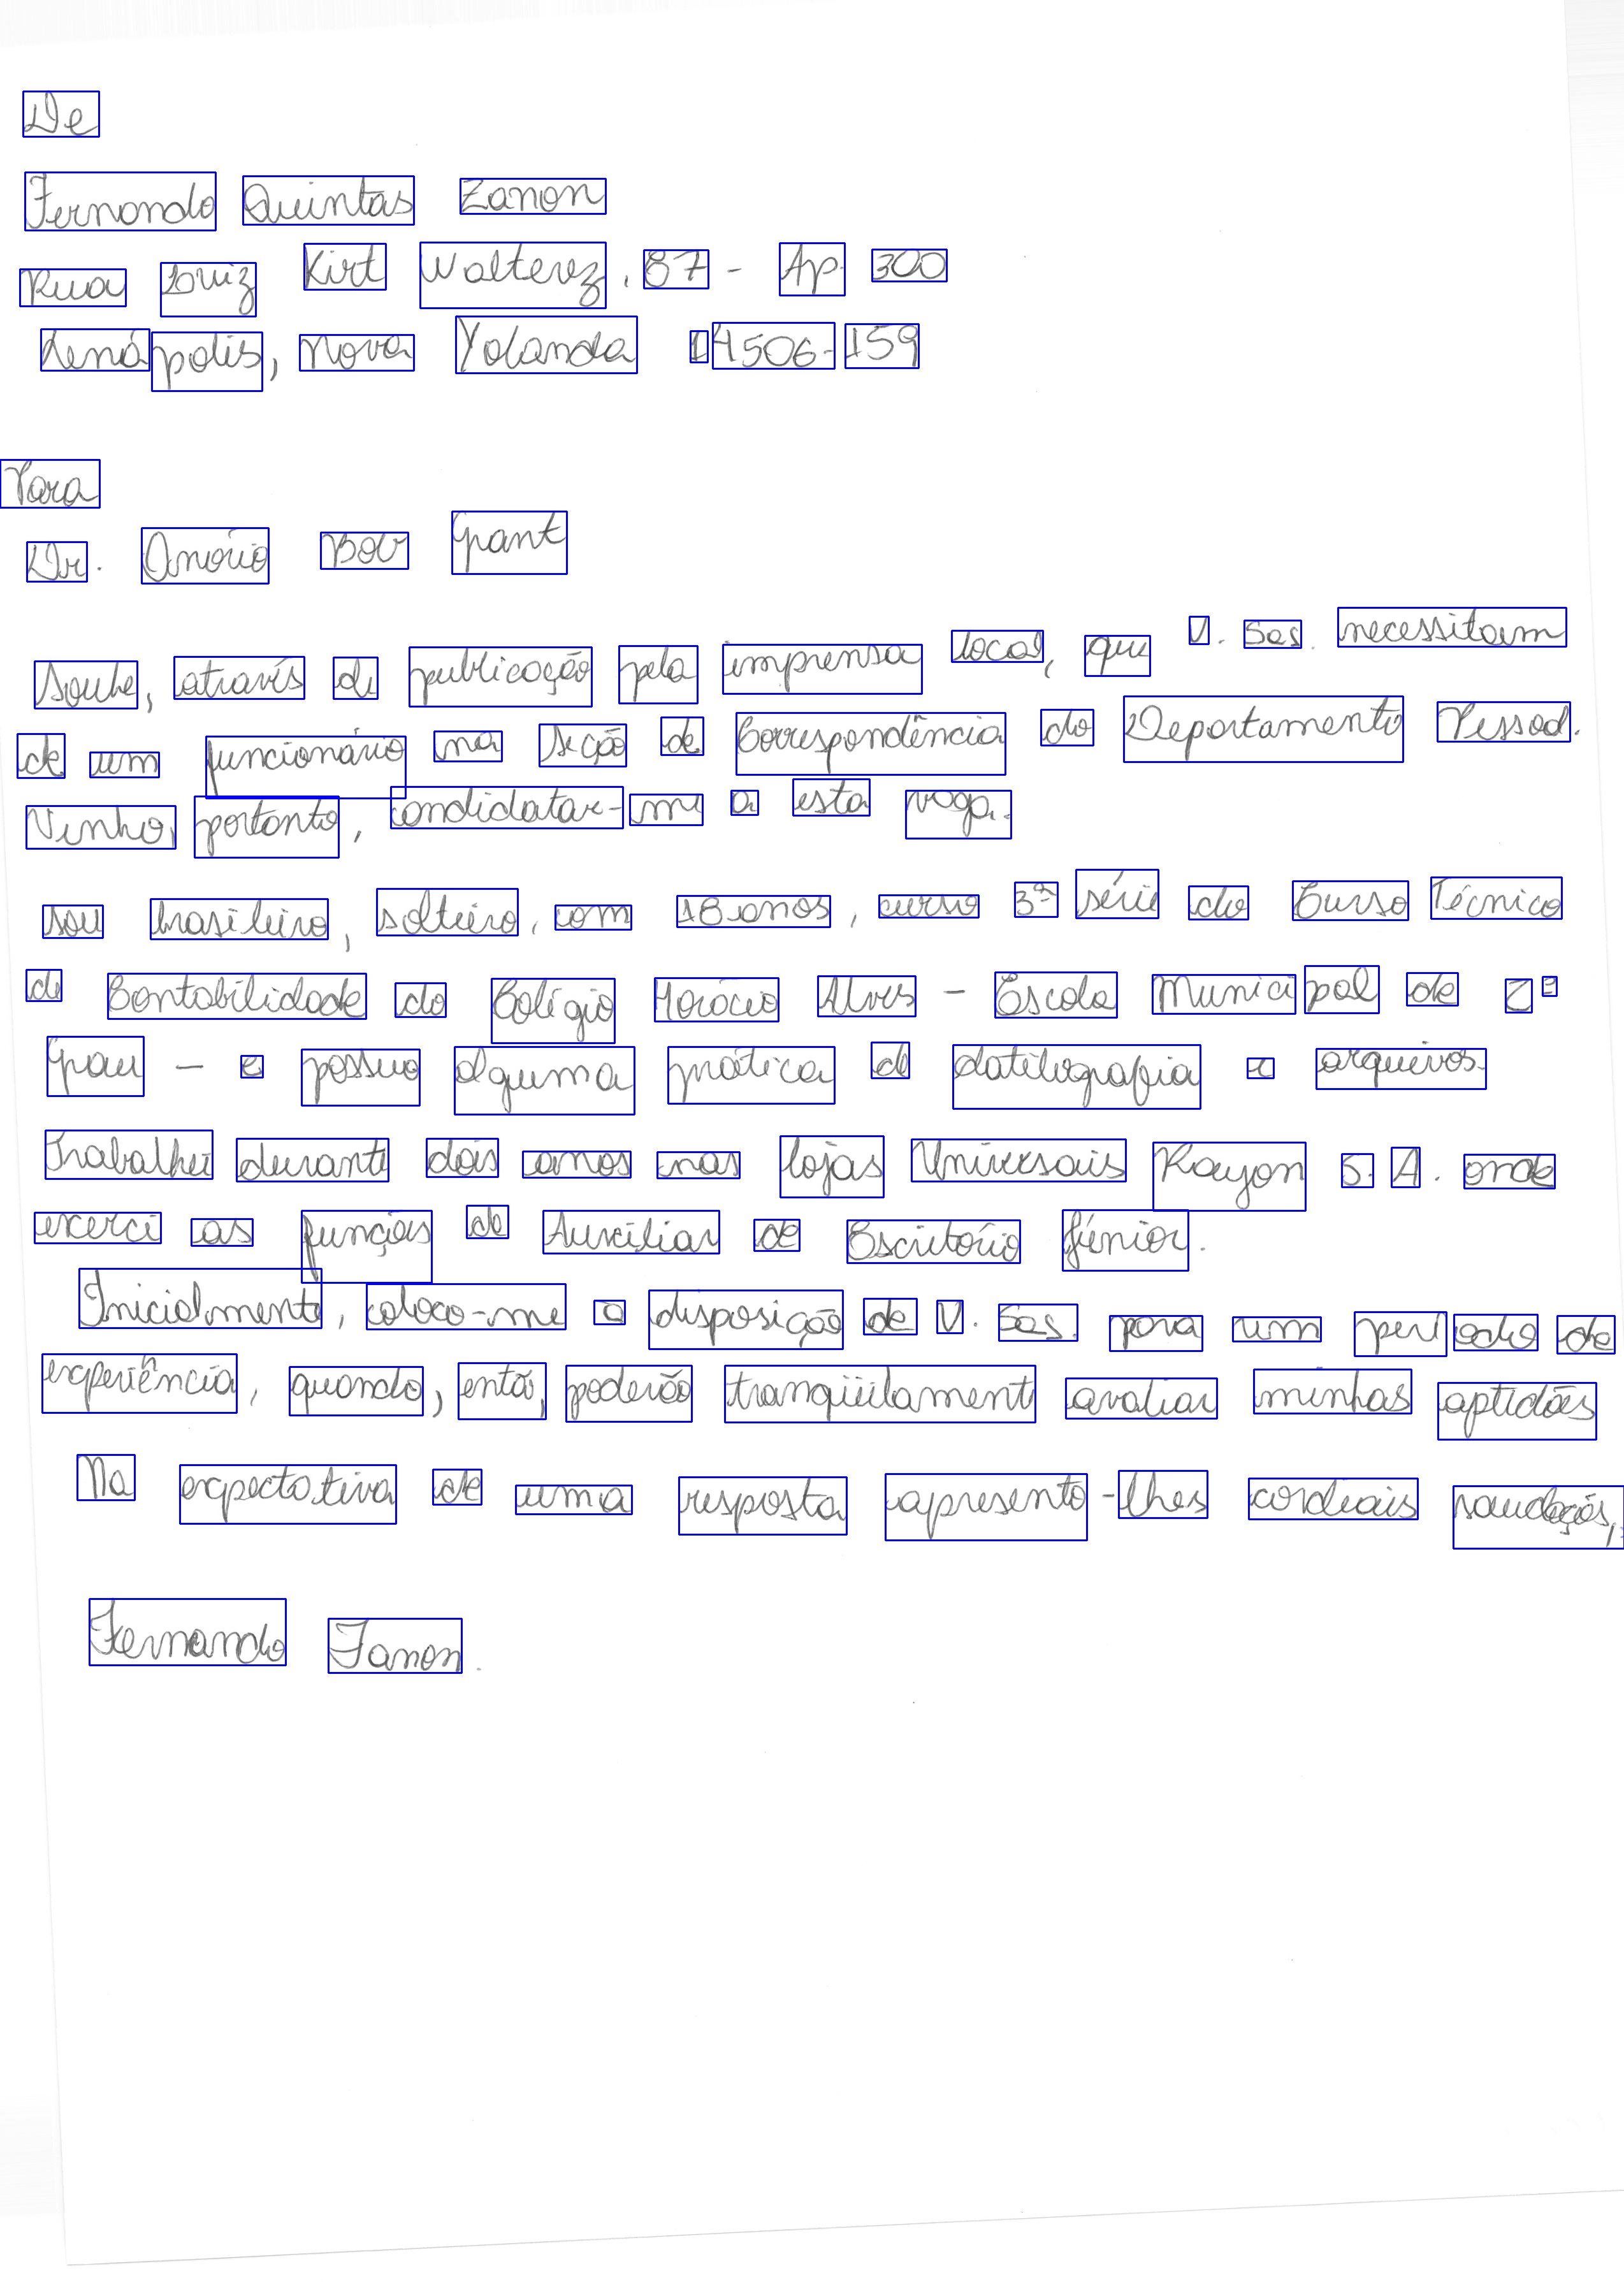 De
Fernando Quintas Zanon
Rua Luiz Kirt Walterez, 87 - Ap. 300
Lenápolis, Nova Yolanda 14506-159
Para
Dr. Onório Bob Grant
Soube, através de publicação pela imprensa local, que V. Sas. necessitam
de um funcionário na seção de Correspondência do Departamento Pessoal.
Venho, portanto, candidatar-me a esta vaga.
Sou brasileiro, solteiro, com 18 anos, curso 3ª série do Curso Técnico
de Contabilidade do Colégio Horácio Alves - Escola Municipal de 2º
Grau - e possuo alguma prática de datilografia e arquivos.
Trabalhei durante dois anos nas lojas Universais Rayon S. A. onde
exerci as funções de Auxiliar de Escritório Júnior.
Inicialmente, coloco-me a disposição de V. Sas. para um período de
experiência, quando, então, poderão tranqüilamente avaliar minhas aptidões
Na expectativa de uma resposta apresento-lhes cordiais saudações,
Fernando Zanon.